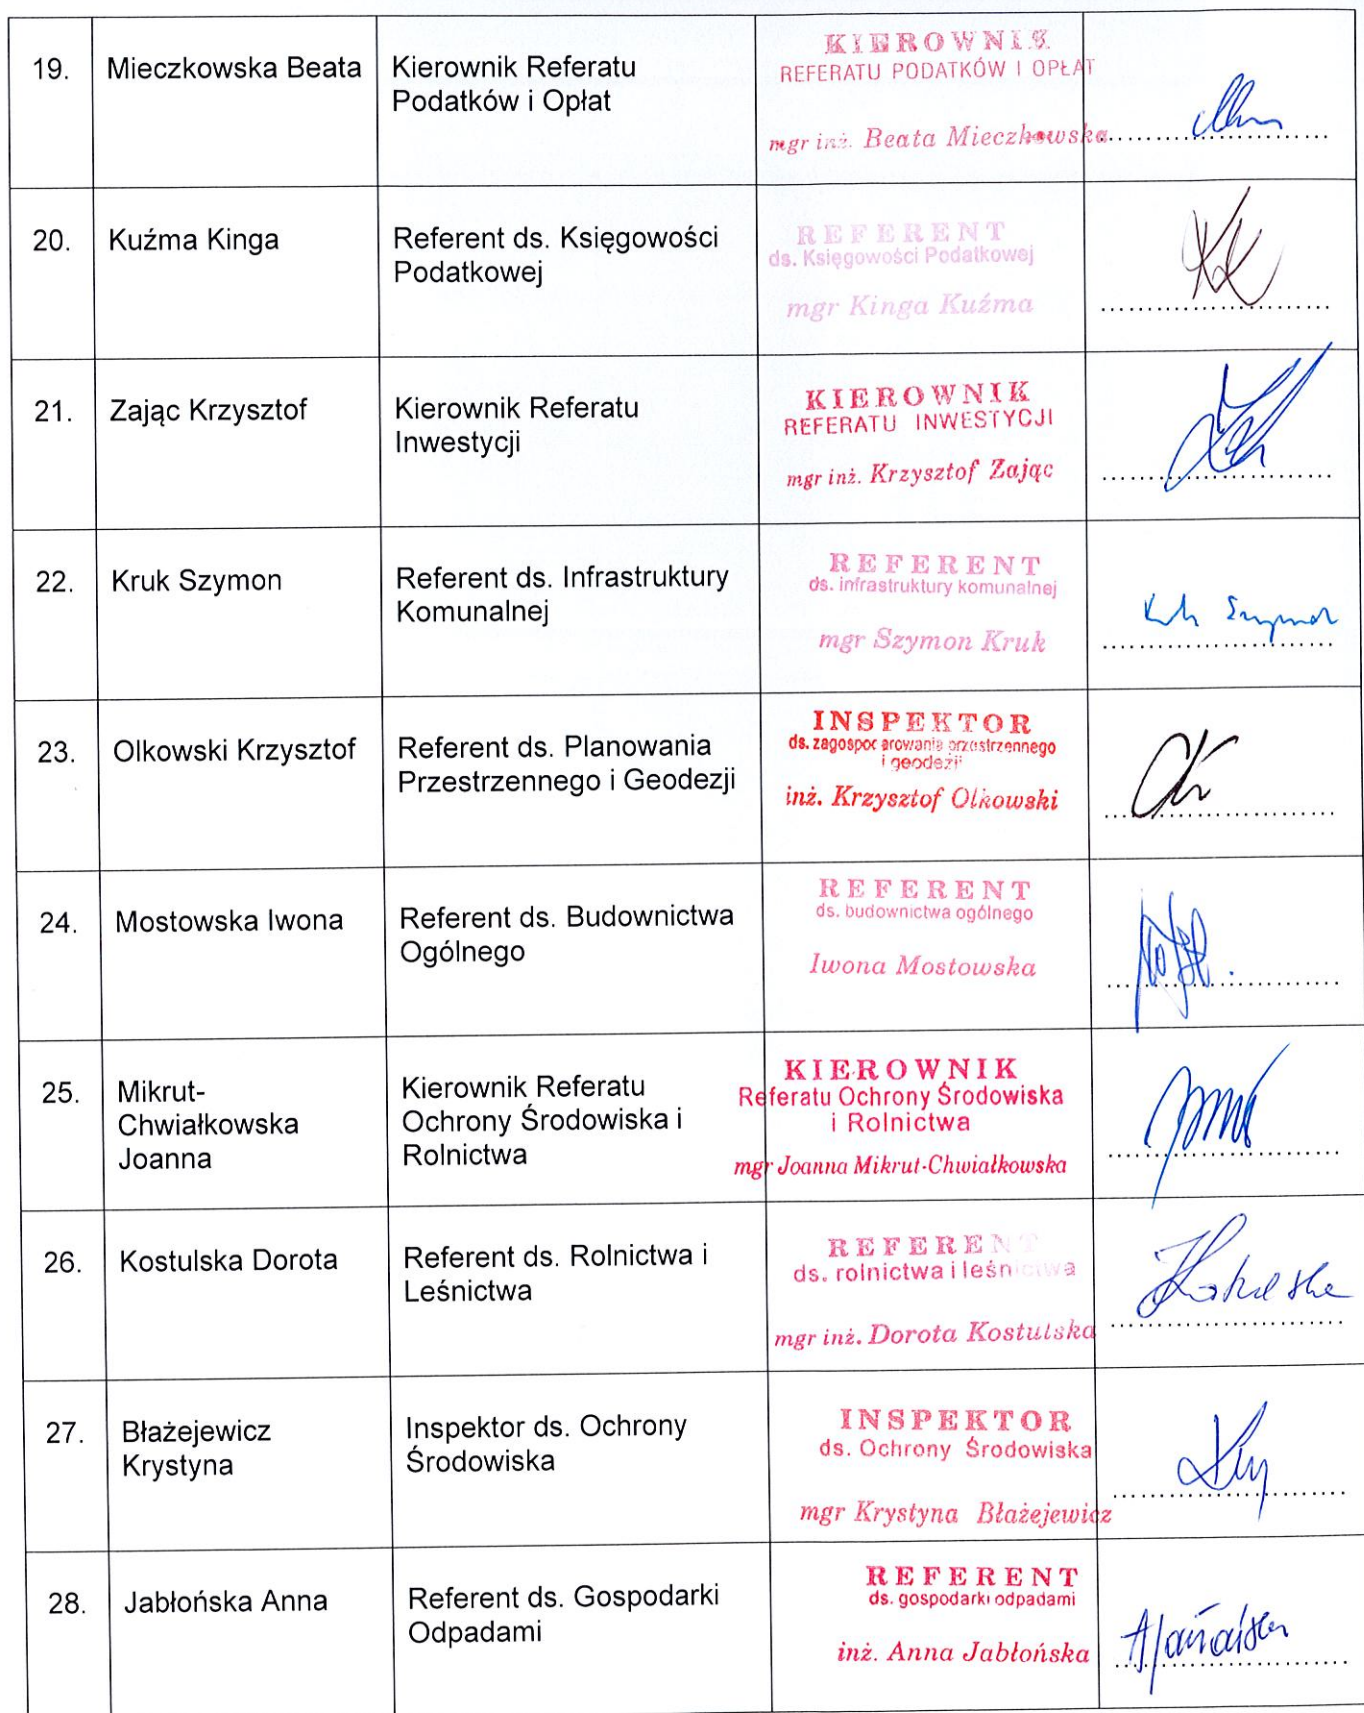 19.
Mieczkowska Beata
Kierownik Referatu
Podatków i Opłat
KIEROWNIK
REFERATU PODATKÓW I OPŁAT
mgr inż. Beata Mieczkowska
20.
Kuźma Kinga
Referent ds. Księgowości
Podatkowej
REFERENT
ds. Księgowości Podatkowej
mgr Kinga Kuźma
21.
Zając Krzysztof
Kierownik Referatu
Inwestycji
KIEROWNIK
REFERATU INWESTYCJI
mgr inż. Krzysztof Zając
22.
Kruk Szymon
Referent ds. Infrastruktury
Komunalnej
REFERENT
ds. infrastruktury komunalnej
mgr Szymon Kruk
23.
Olkowski Krzysztof
Referent ds. Planowania
Przestrzennego i Geodezji
INSPEKTOR
ds. zagospodarowania przestrzennego
i geodezji
inż. Krzysztof Olkowski
24.
Mostowska Iwona
Referent ds. Budownictwa
Ogólnego
REFERENT
ds. budownictwa ogólnego
Iwona Mostowska
25.
Mikrut-
Chwiałkowska
Joanna
Kierownik Referatu
Ochrony Środowiska i
Rolnictwa
KIEROWNIK
Referatu Ochrony Środowiska
i Rolnictwa
mgr Joanna Mikrut-Chwiałkowska
26.
Kostulska Dorota
Referent ds. Rolnictwa i
Leśnictwa
REFERENT
ds. rolnictwa i leśnictwa
mgr inż. Dorota Kostulska
27.
Błażejewicz
Krystyna
Inspektor ds. Ochrony
Środowiska
INSPEKTOR
ds. Ochrony Środowiska
mgr Krystyna Błażejewicz
28.
Jabłońska Anna
Referent ds. Gospodarki
Odpadami
REFERENT
ds. gospodarki odpadami
inż. Anna Jabłońska